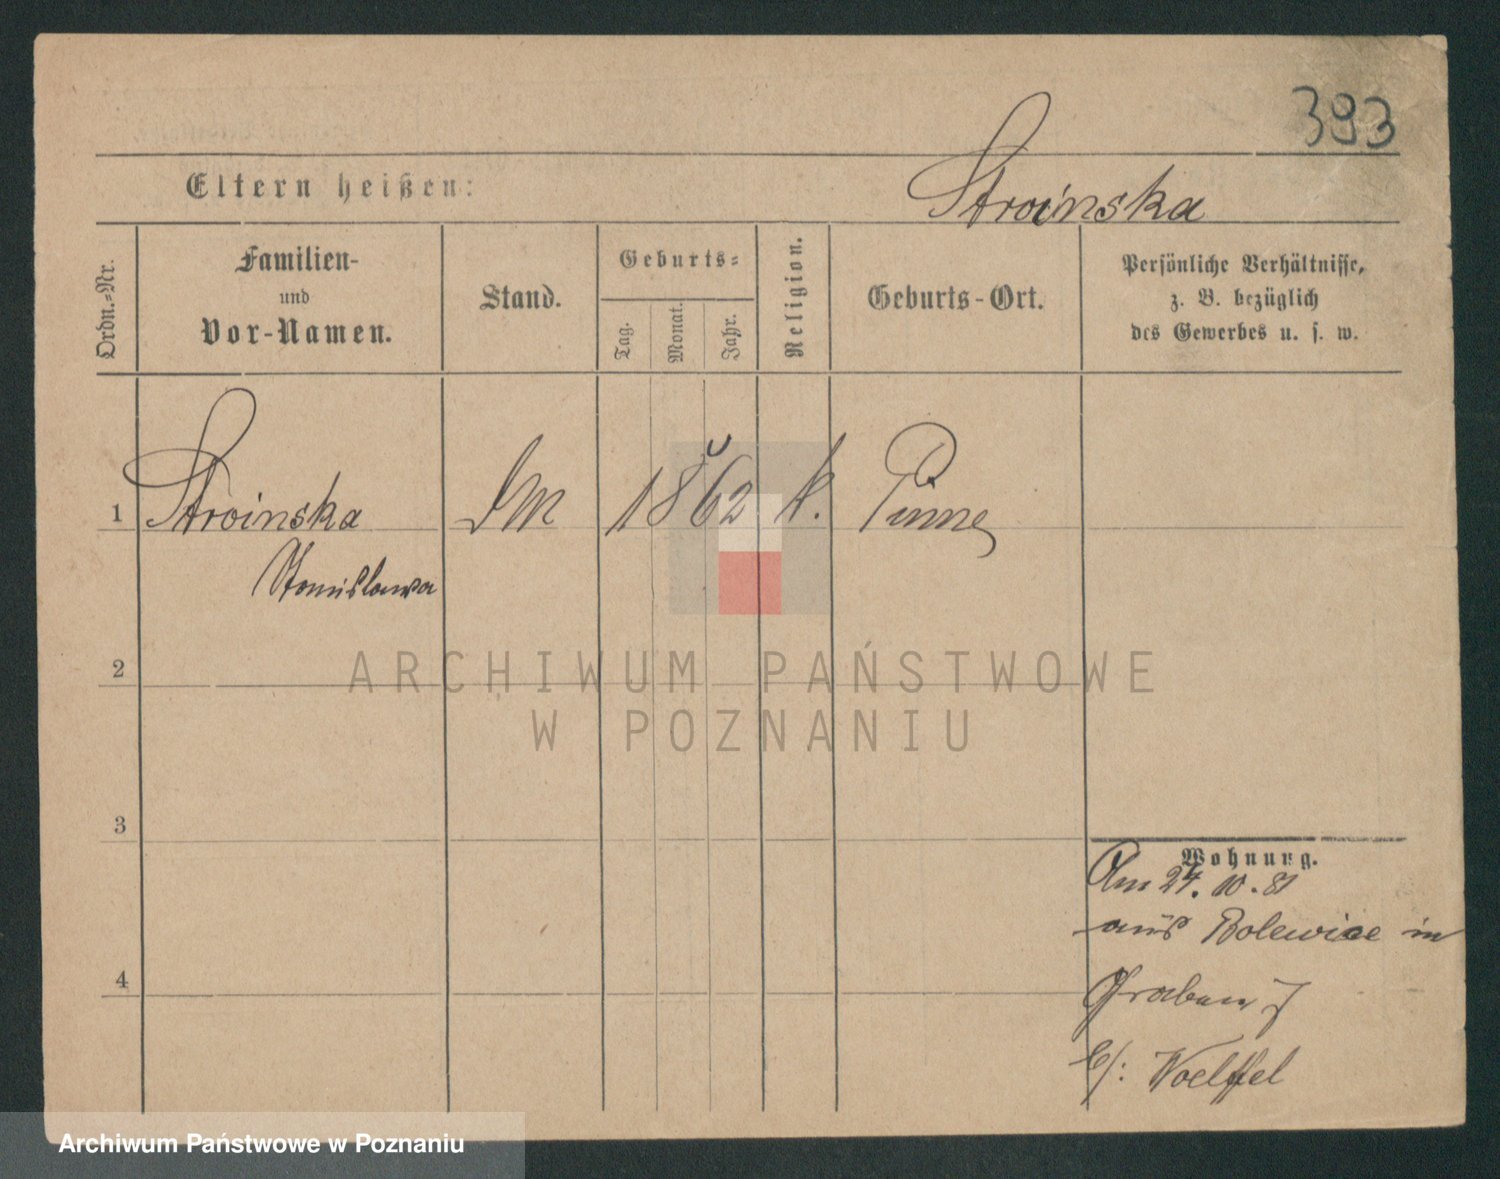 393
Eltern heißen:
Stroinska
Ordn.-Nr.
Familien-
und
Vor-Namen.
Stand.
Geburts-
Tag.
Monat.
Jahr.
Religion.
Geburts-Ort.
Persönliche Verhältnisse,
z. B. bezüglich
des Gewerbes u. s. w.
1 Stroinska DM 1862 k. Pinne
Stanislawa
2
3
4
Wohnung.
Am 24. 10. 81
aus Bolewice in
Graben 7
b/: Woelffel
ARCHIWUM PAŃSTWOWE
W POZNANIU
Archiwum Państwowe w Poznaniu